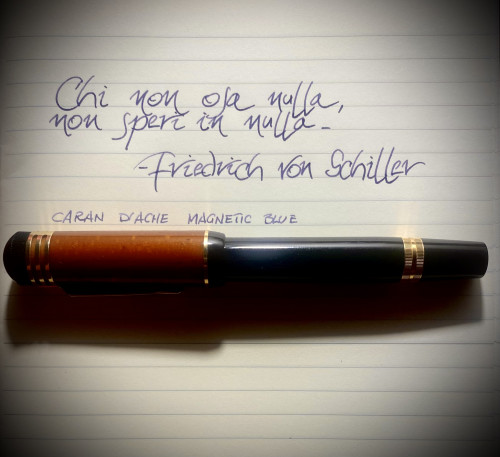 Chi non osa nulla,
non speri in nulla-
-Friedrich von Schiller
CARAN D'ACHE MAGNETIC BLUE